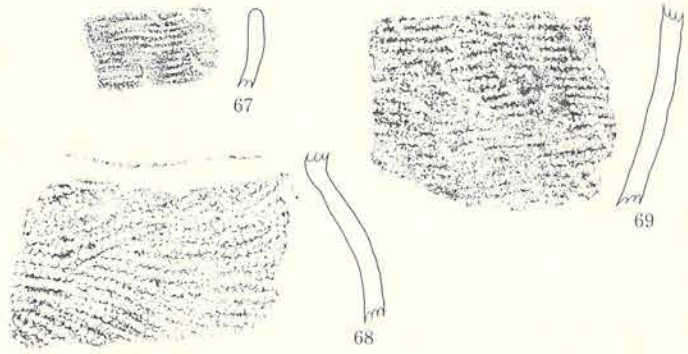 67
69
68